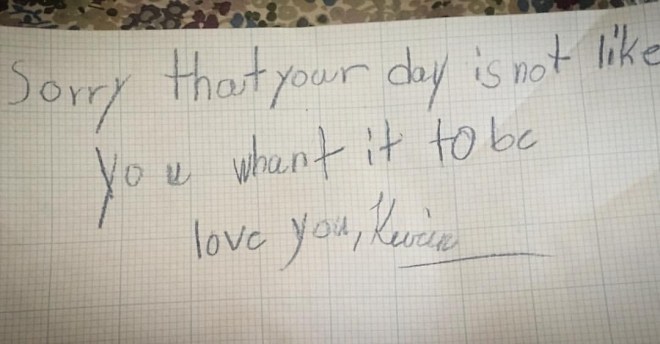 Sorry that your day is not like
you whant it to be
love you, Kevin